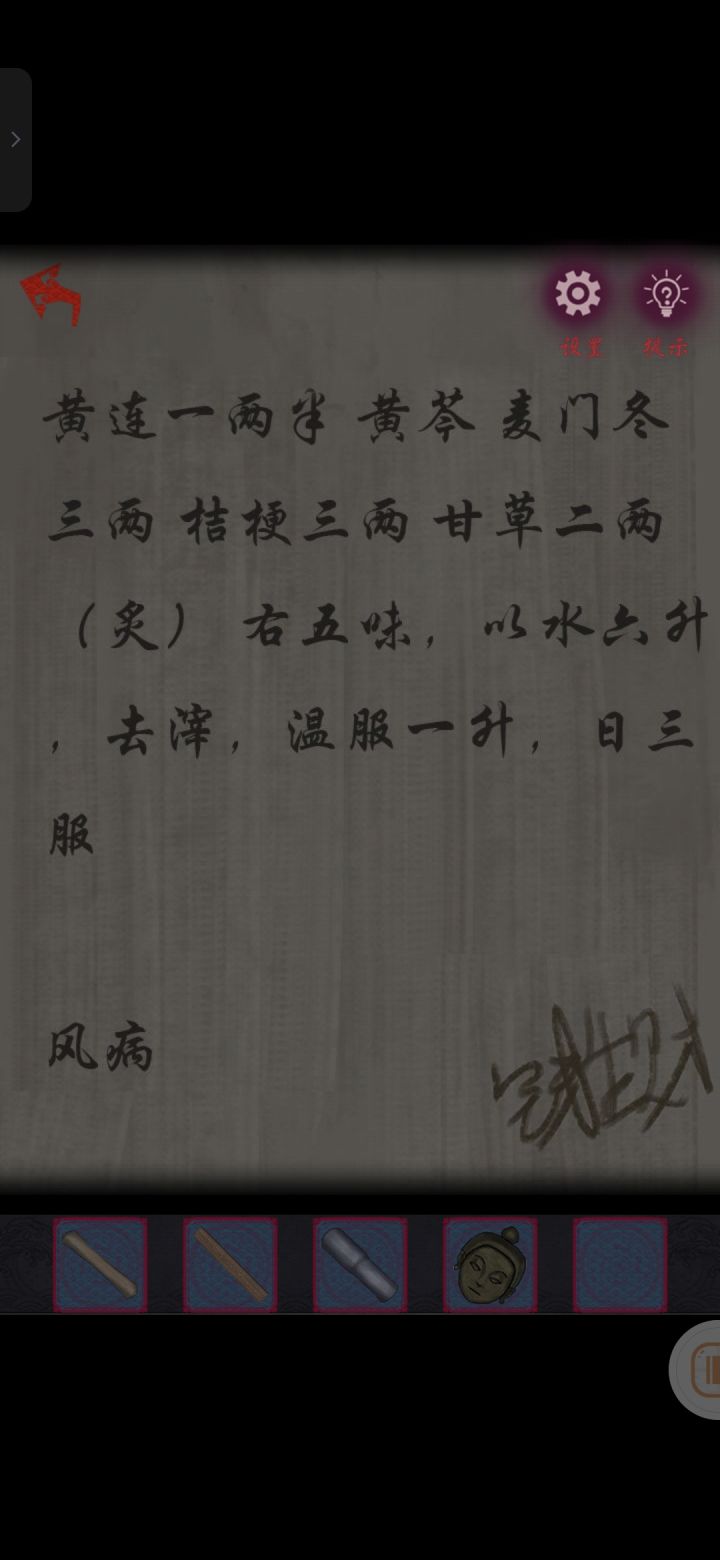 设置 提示
黄连一两半 黄芩 麦门冬
三两 桔梗三两 甘草二两
（炙） 右五味，以水六升
，去滓，温服一升，日三
服
风病